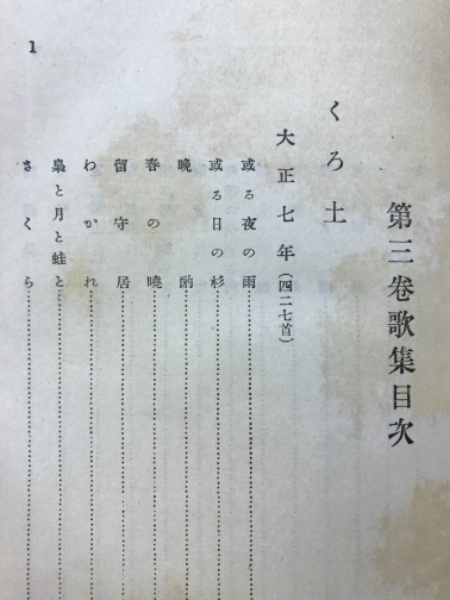 第三卷歌集目次
くろ土
大正七年（四二七首）
或る夜の雨
或る日の杉
晩酌
春の曉
留守居
わかれ
梟と月と蛙と
さくら
1